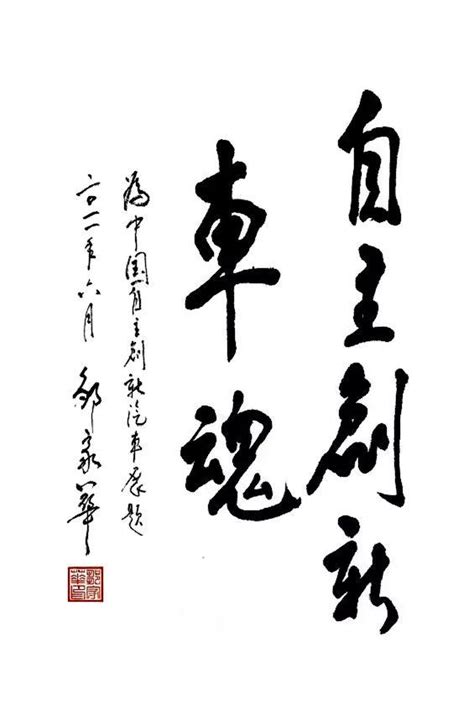 自主創新
車魂
為中国自主創新汽車展題
二〇一一年六月 邹家华